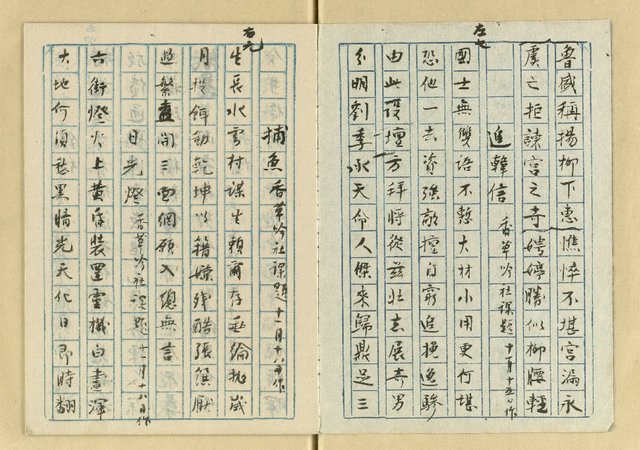 左七
魯感稱揚柳下惠憔悴不堪宮漏永
虞亡拒諫宮之奇娉婷勝似柳腰輕
追韓信 香草吟社課題 十一月十五日作
國士無雙語不整大材小用更何堪
恐他一去資強敵擅自窮追挽逸驂
由此設壇方拜將從茲壯志展奇男
分明劉季承天命人傑來歸鼎足三
右元
捕魚 香草吟社課題 十一月十八日作
生長水雲村謀生賴爾存垂綸挑歲
月投餌動乾坤以籍嫌殘酷張筌厭
過繁盍開三面網願入總無言
日光燈 香草吟社課題 十一月十八日作
六街燈火上黃昏裝置靈機白晝渾
大地何須愁黑暗光天化日即時翻